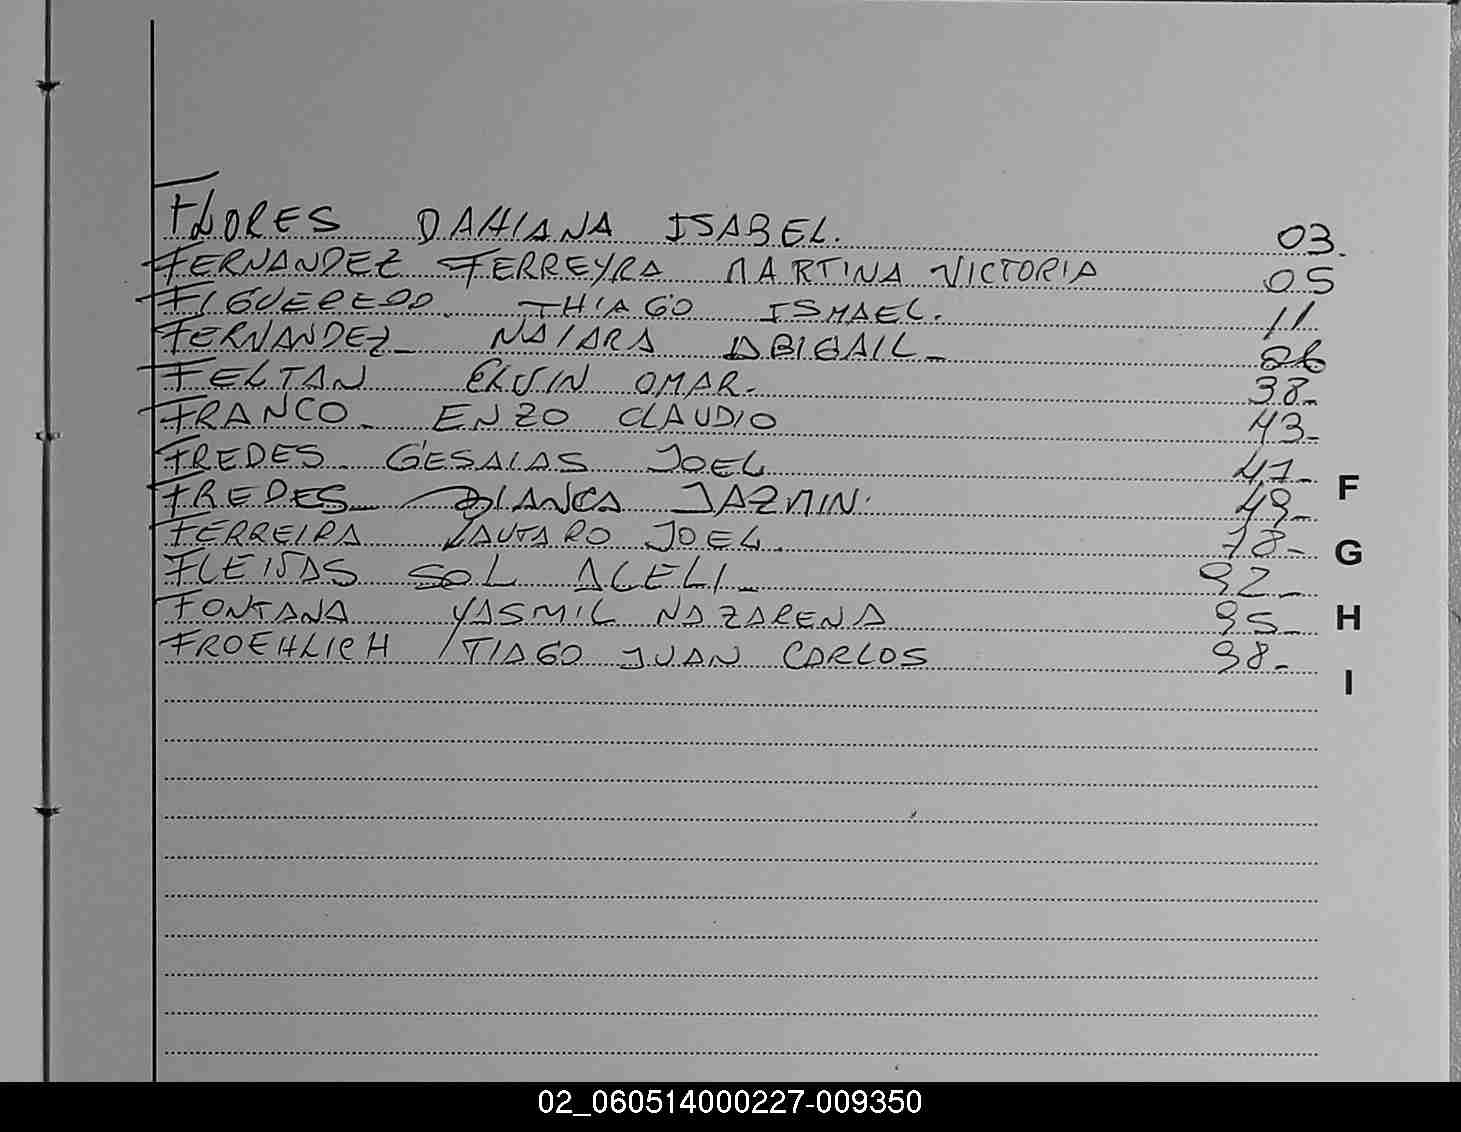 FLORES DAHIANA ISABEL. 03.
FERNANDEZ FERREYRA MARTINA VICTORIA 05
FIGUEREDO. THIAGO ISMAEL. 11
FERNANDEZ_ NAIARA ABIGAIL_ 26
FELTAN ELVIN OMAR. 38_
FRANCO_ ENZO CLAUDIO 43_
FREDES_ GESAIAS JOEL 47_
FREDES_ BIANCA JAZMIN. 49_
FERREIRA LAUTARO JOEL. 78_
FLEITAS SOL ACELI_ 92_
FONTANA YASMIL NAZARENA 95_
FROEHLICH TIAGO JUAN CARLOS 98_
F
G
H
I
02_060514000227-009350